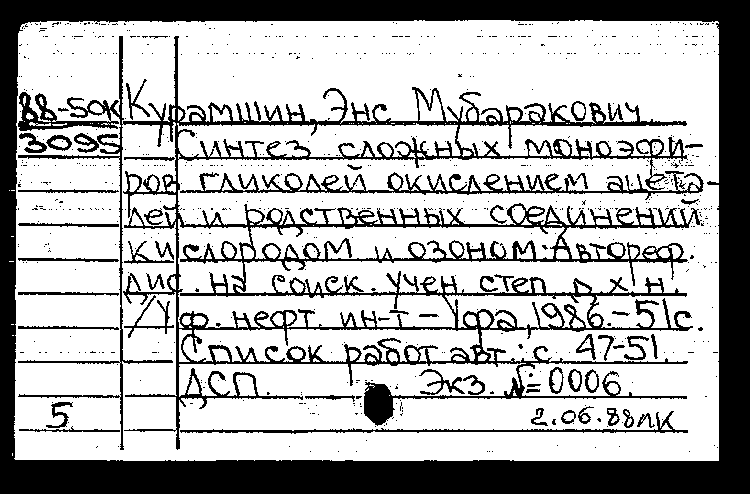 88-50К Курамшин, Энс Мубаракович
3095 Синтез сложных моноэфи-
ров гликолей окислением ацета-
лей и родственных соединений
кислородом и озоном: Автореф.
дис. на соиск. учен. степ. д. х. н.
/Уф. нефт. ин-т – Уфа, 1986.-51с.
Список работ авт.: с. 47-51.
ДСП. Экз. №=0006.
5 2.06.88лк